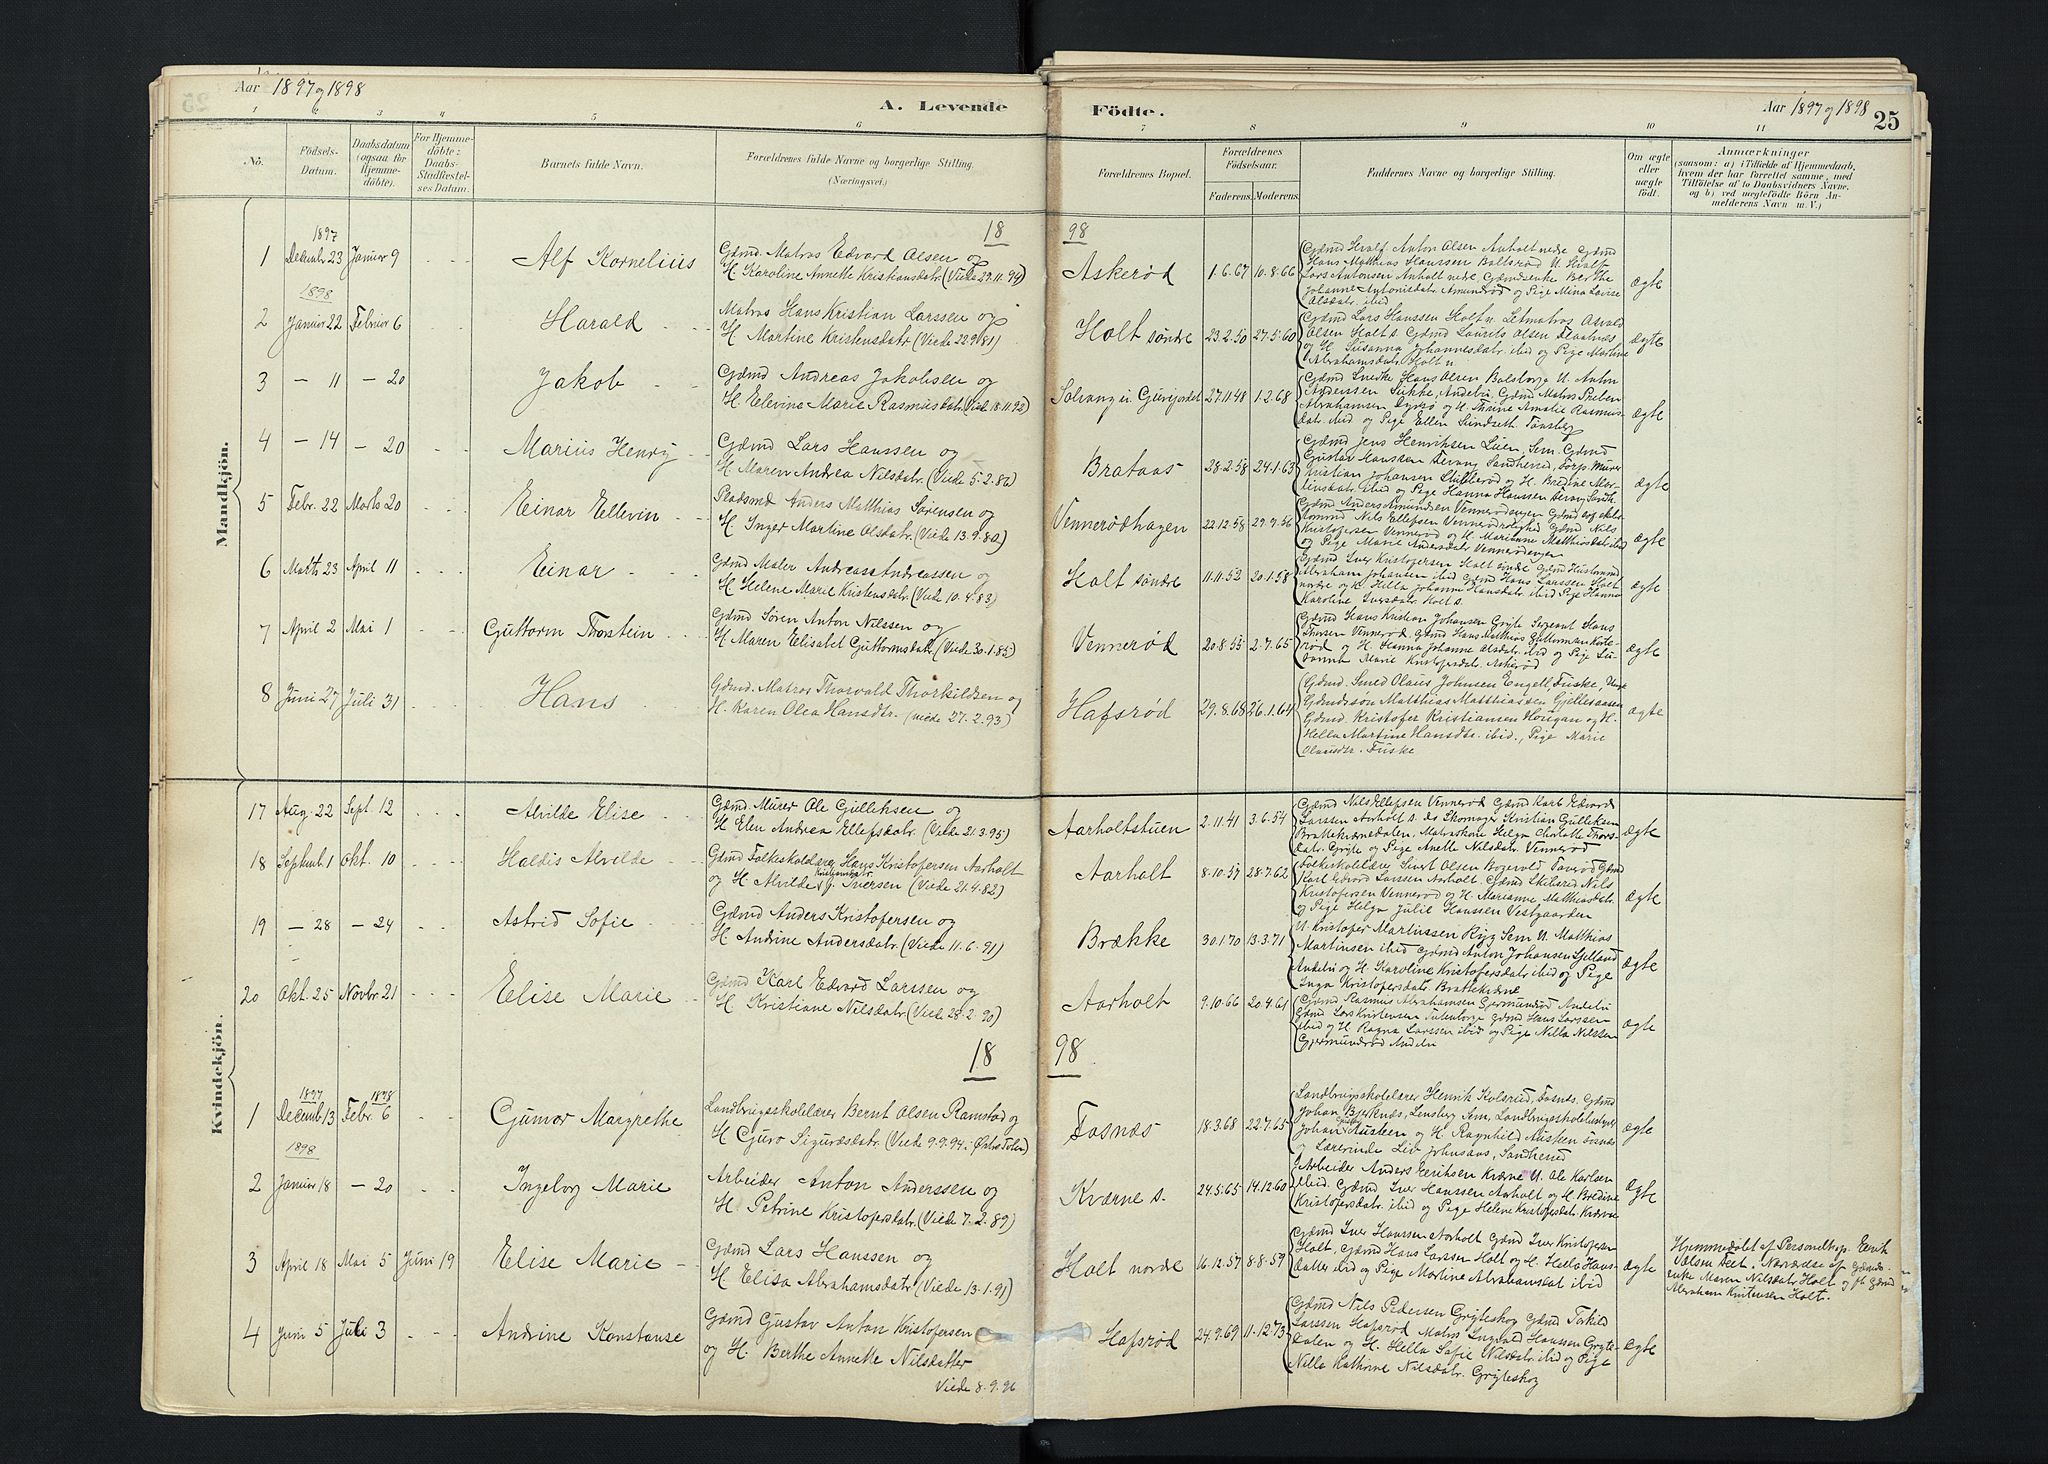 Aar 1897 og 1898
A. Levende
Födte.
Aar 1897 og 1898
25
1 2 3 4 5 6 7 8 9 10 11
No.
Födsels-Datum.
Daabsdatum (ogsaa for Hjemmedöbte).
For Hjemmedöbte: Daabs-Stadfæstelses Datum.
Barnets fulde Navn.
Forældrenes fulde Navne og borgerlige Stilling.
(Næringsvei.)
Forældrenes Bopæl.
Forældrenes Födselsaar.
Faderens. Moderens.
Faddernes Navne og borgerlige Stilling.
Om ægte eller uægte födt.
Anmærkninger
(saasom: a) i Tilfælde af Hjemmedaab, hvem der har forrettet samme, med Tilföielse af to Daabsvidners Navne, og b) ved uegtefödte Börn Anmelderens Navn m. V.)
Mandkjön.
18 98
1897
1 Decembr 23 Januar 9 Alf Kornelius
Gdmd. Matros Edvard Olsen og
H. Karoline Annette Kristiansdatr. (Viede 29.11.94)
Askerød 1.6.67 10.8.66
Gdmd Hralf Anton Olsen Anholt nedr. Gdmd
Hans Matthias Hanssen Bollerød U.
Lars Antonsen Anholt nedr. Gdmdsenke Berthe
Johanne Antonisdatr. Amundrød og Pige Mina Lovise
Olsdatr. ibid
ægte
1898
2 Januar 22 Februar 6 Harald
Matros Hans Kristian Larssen og
H. Martine Kristensdatr. (Viede 22.9.81)
Holt söndre 23.2.50 27.5.60
Gdmd Lars Hanssen Holt n. Letmatros Osvald
Olsen Holt s. Gdmd Laurits Olsen
og H. Susanna Johannesdatr. ibid og Pige Martine
Abrahamsdatr. Holt n
ægte
3 — 11 — 20 Jakob
Gdmd Andreas Jakobsen og
H. Elevine Marie Rasmusdatr. (Viede 18.11.92)
Solvang u. Gurijordet 27.11.48 1.2.68
Gdmd Snedk. Hans Olsen Bolsborge U. Anton
Anderssen Sukke, Andebu, Gdmd Matros Preben
Abrahamsen og H. Thrine Amalie Rasmus-
datr. ibid og Pige Ellen Sundseth Tönsberg
ægte
4 — 14 — 20 Marius Henry
Gdmd Lars Hanssen og
H. Maren Andrea Nilsdatr. (Viede 5.2.82)
Brataas 28.2.58 24.1.63
Gdmd Jens Henriksen Lien, Sem, Gdmd
Gustav Hanssen Berang Sandherred, Torp. Murer
Kristian Johansen og H. Bredine Mar-
tinsdatr. ibid og Pige Hanna Hanssen Berang Sandh.
ægte
5 Febr. 22 Marts 20 Einar Ellevin
Pladsmd Anders Matthias Sørensen og
H. Inger Martine Olsdatr. (Viede 13.9.80)
Vennerødhagen 22.12.58 29.7.56
Gdmd Anders Amundsen Vennerödengen Gdmd
Nils Ellefsen Vennerød Gdmd Nils
Kristofersen Vennerød og H. Marianne Matthiasdatr. ibid
og Pige Marie Andersdatr. Vennerödengen
ægte
6 Marts 23 April 11 Einar
Gdmd Maler Andreas Andreassen og
H. Helene Marie Kristensdatr. (Viede 10.4.83)
Holt söndre 11.11.52 20.1.58
Gdmd Iver Kristofersen Holt söndre Gdmd Husmand
Abraham Johansen ibid Gdmd Hans Larssen Holt
nordre og H. Hella Johanne Hansdatr. ibid Pige Hanna
Karoline Iversdatr. Holt s.
ægte
7 April 2 Mai 1 Guttorm Thorstein
Gdmd Søren Anton Nilssen og
H. Maren Elisabet Guttormsdatr. (Viede 30.1.85)
Vennerød 20.8.55 2.7.65
Gdmd Hans Kristian Johansen Gryte Sergeant Hans
Thorsen Vennerød, Gdmd Hans Matthias Guttormsen Kate-
rød og H. Hanna Johanne Olsdatr. ibid og Pige Lo-
vanna Marie Kristofersdatr. Askerød
ægte
8 Juni 27 Juli 31 Hans
Gdmd. Matros Thorvald Thorkildsen og
H. Karen Olea Hansdtr. (viede 27.2.93)
Hafsrød 29.8.68 26.1.64
Gdmd. Smed Olaus Johnsen Engell, Fuske, Unge
Gdmdssön Matthias Matthiassen Gjellesaasen
Gdmd. Kristofer Kristiansen Hougan og H.
Hella Martine Hansdtr. ibid., Pige Marie
Olausdtr. Fuske
ægte
Kvindekjön.
17 Aug. 22 Sept. 12 Alvilde Elise
Gdmd. Murer Ole Gulliksen og
H. Elen Andrea Ellefsdatr. (Viede 21.3.95)
Aarholtstuen 2.11.41 3.6.54
Gdmd Nils Ellefsen Vennerød Gdmd Karl Edvard
Larssen Aarholt s. do Skomager Kristian Gulliksen
Brattekværnedalen. Matroskone Helga Charlotte Thors-
datr. Gryte og Pige Anette Nilsdatr. Vennerød
ægte
18 Septembr 1 Okt. 10 Haldis Alvilde
Gdmd Folkeskolelærer Hans Kristofersen Aarholt
og H. Alvilde Kristiansdatr. f. Iversen (Viede 21.4.82)
Aarholt 8.10.57 28.7.62
Folkeskolelærer Sivert Olsen Bogevold Gdmd
Karl Edvard Larssen Aarholt. Gdmd Nils
Kristofersen Vennerød og H. Marianne Matthiasdatr.
og Pige Helga Julie Hanssen Vestgaarden
ægte
19 — 28 — 24 Astrid Sofie
Gdmd Anders Kristofersen og
H. Andrine Andersdatr. (Viede 11.6.91)
Brække 30.1.70 13.3.71
U. Kristofer Martinssen Ryg Sem U. Matthias
Martinsen ibid Gdmd Anton Johansen Sjelland
Andebu og H. Karoline Kristofersdatr. ibid og Pige
Inga Kristofersdatr. Brattekværne
ægte
20 Okt. 25 Novbr. 21 Elise Marie
Gdmd Karl Edvard Larssen og
H. Kristiane Nilsdatr. (Viede 28.2.90)
Aarholt 9.10.66 20.4.61
Gdmd Rasmus Abrahamsen Gjermundrød Andebu
Gdmd Lars Kristensen Gdmd Hans Larssen
ibid og H. Ragna Larssen ibid og Pige Nilla Nilssen
Gjermundrød Andebu
ægte
18 98
1897 1898
1 Decemb 13 Febr. 6 Gunvor Margrethe
Landbrugsskolelærer Bernt Olsen Ramstad og
H. Guro Sigurdsdatr. (Viede 9.9.94 i Østre Toten)
Fosnæs 18.3.68 22.7.65
Landbrugsskolelærer Henrik Kolsrud, Fosnæs. Gdmd
Johan Bjerknæs, Lensberg Sem, Landbrugsskolebestyrer
Johan Austeen og H. Ragnhild Austeen Fosnæs
og Lærerinde Liv Johnsaas, Sandherred
ægte
1898
2 Januar 18 — 20 Ingeborg Marie
Arbeider Anton Anderssen og
H. Petrine Kristofersdatr. (Viede 7.2.89)
Kværne s. 24.5.65 14.12.60
Arbeider Anders Eriksen Kværne U. Ole Karlsen
ibid. Gdmd Iver Hanssen Aarholt og H. Bredine
Kristofersdatr. ibid og Pige Helene Kristofersdatr. Kværne
ægte
3 April 18 Mai 5 Juni 19 Elise Marie
Gdmd Lars Hanssen og
H. Elisa Abrahamsdatr. (Viede 13.1.91)
Holt nordre 16.12.57 8.8.59
Gdmd Iver Hanssen Aarholt Gdmd Iver Kristofersen
Holt, Gdmd Hans Larsen Holt og H. Hella Hans-
datter ibid og Pige Martine Abrahamsdat ibid
ægte
Hjemmedøbt af Personelkap. Eerik
Olsen Teet. Nærværelse af Gdmds-
enke Maren Nilsdatr. Holt og Gdmd
Abraham Kristensen Holt.
4 Juni 5 Juli 3 Andrine Konstanse
Gdmd Gustav Anton Kristofersen
og H. Berthe Annette Nilsdatter
Viede 8.9.96
Hafsrød 24.9.69 11.12.73
Gdmd Nils Pedersen Gryteskog Gdmd Torkild
Larssen Hafsrød Matros Ingvald Hanssen Gryte-
dalen og H. Hella Sofie Nilsdatr. ibid og Pige
Nilla Kathrine Nilsdatr. Gryteskog
ægte